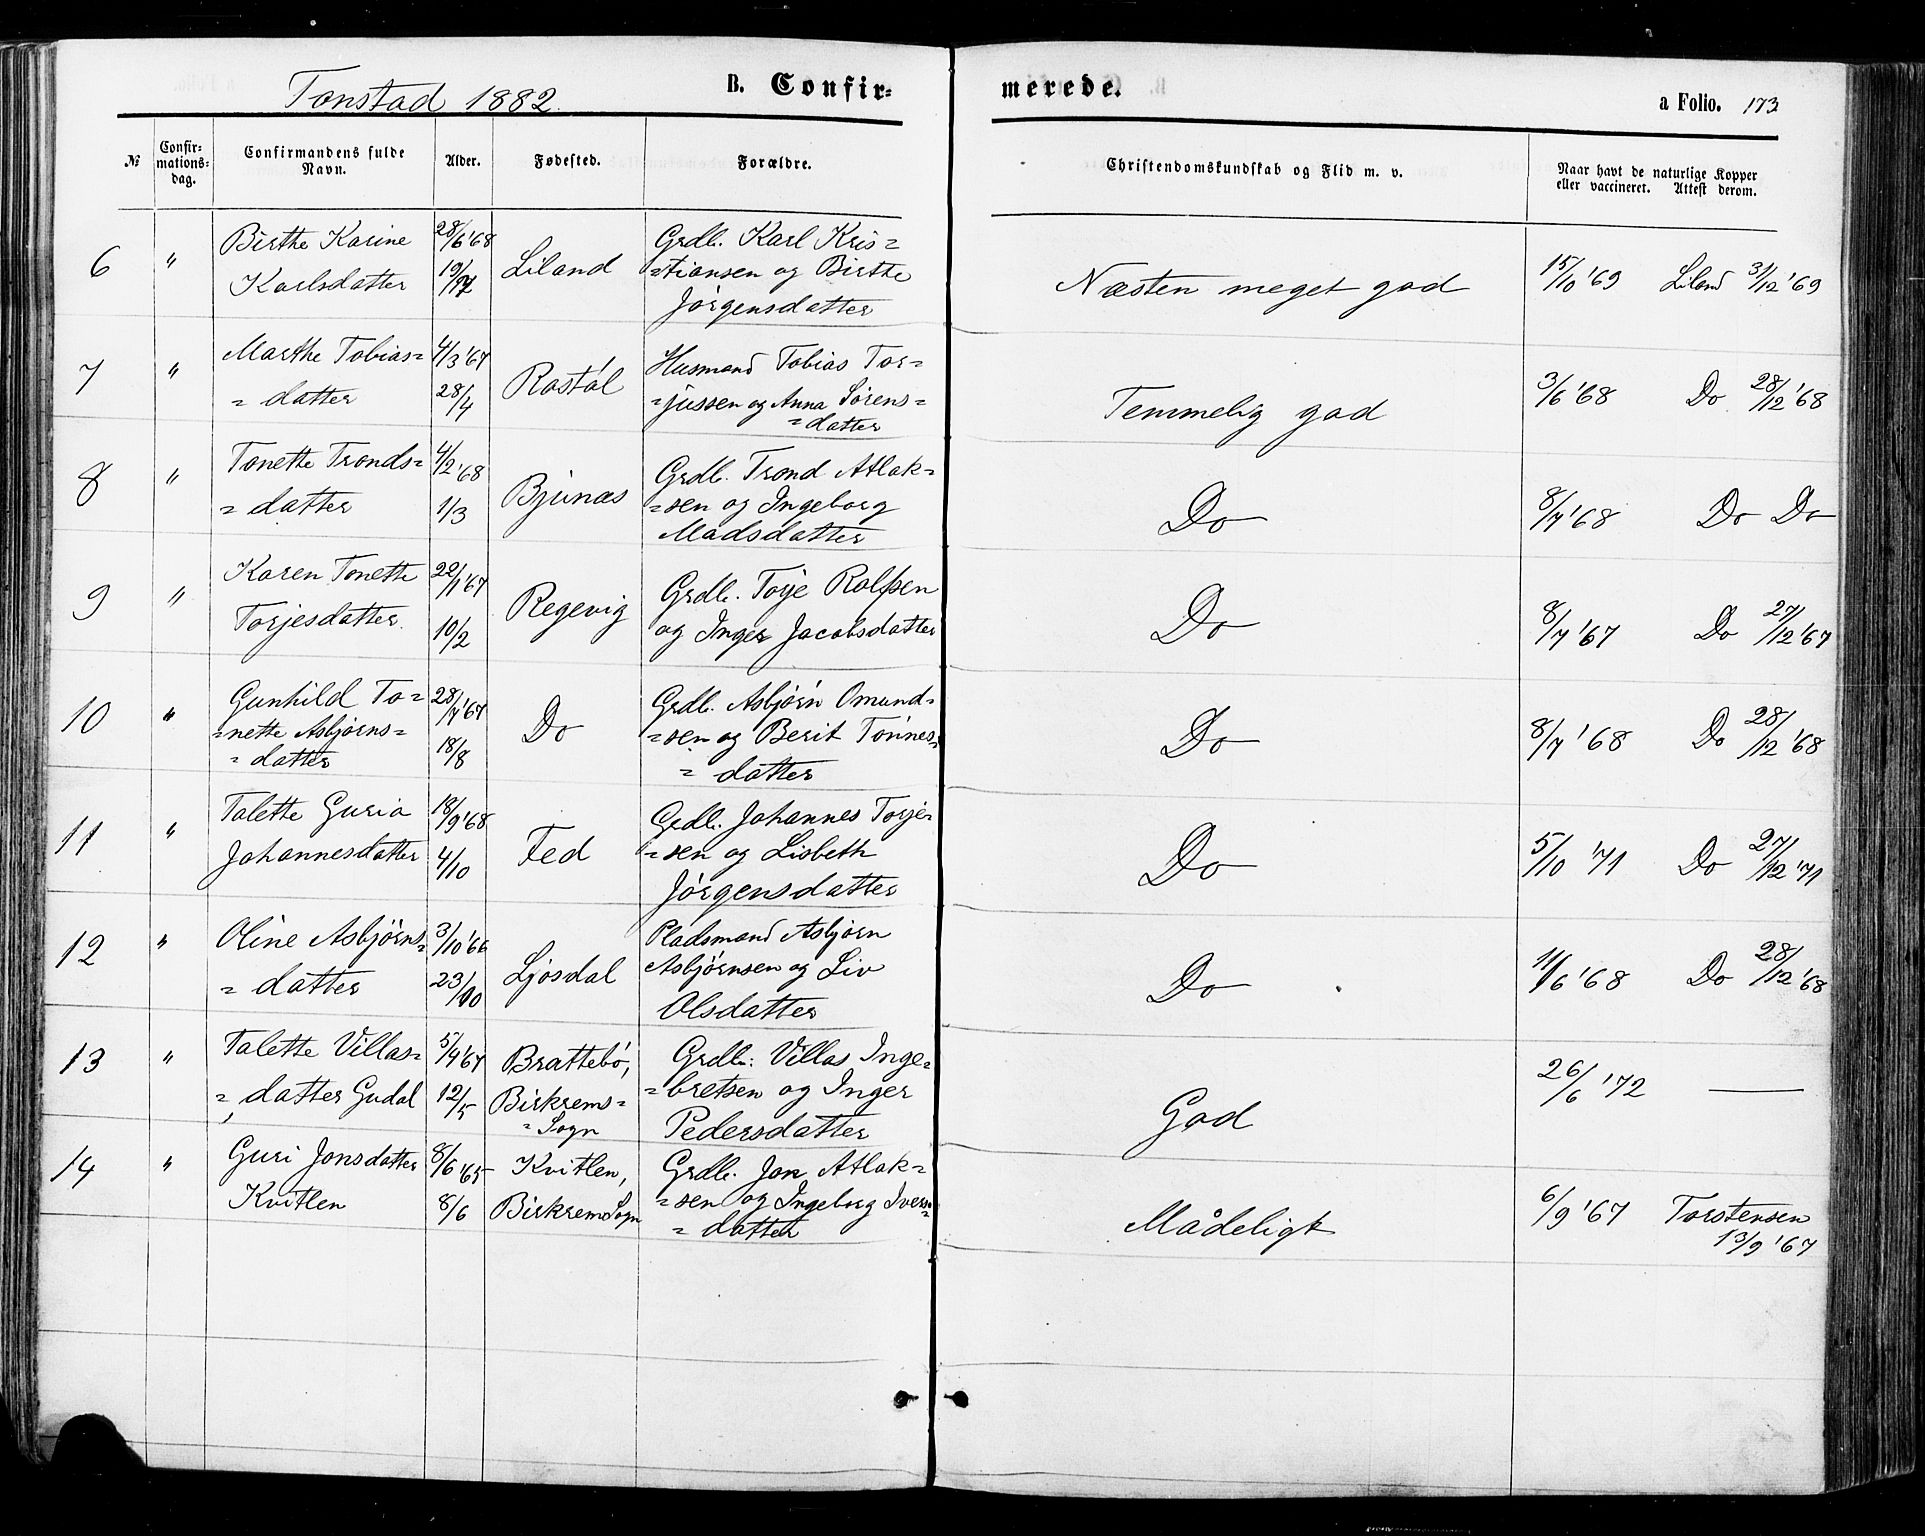 Tonstad 1882.
B. Confir=
merede.
a Folio. 173
№
Confir=
mations=
dag.
Confirmandens fulde
Navn.
Alder.
Fødested.
Forældre.
Christendomskundskab og Flid m. v.
Naar havt de naturlige Kopper
eller vaccineret. Attest derom.
6 " Birthe Karine 28/6 '68 Liland Grdb. Karl Kris=
Karlsdatter =tiansen og Birthe
Jörgensdatter
Næsten meget god 15/10 '69 Liland 31/12 '69
7 " Marthe Tobias= 4/3 '67 Rostöl Husmand Tobias Tor=
= datter 28/4 =jussen og Anna Sörens=
=datter
Temmelig god 3/6 '68 Do 28/12 '68
8 " Tonette Tronds= 4/2 '68 Bjunas Grdb. Trond Atlak=
= datter 1/3 =sen og Ingeborg
Madsdatter
Do 8/7 '68 Do Do
9 " Karen Tonette 22/1 '67 Regevig Grdb. Torje Rolfsen
Torjesdatter. 10/2 og Inger Jacobsdatter
Do 8/7 '67 Do 27/12 '67
10 " Gunhild To= 28/7 '67 Do Grdb. Asbjörn Omund=
=nette Asbjörns= 18/8 =sen og Berit Tönnes=
= datter = datter
Do 8/7 '68 Do 28/12 '68
11 " Talette Guria 18/9 '68 Fed Grdb. Johannes Torje=
Johannesdatter 4/10 =sen og Lisbeth
Jörgensdatter
Do 5/10 '71 Do 27/12 '71
12 " Oline Asbjörns= 3/10 '66 Ljosdal Pladsmand Asbjörn
= datter 23/10 Asbjörnsen og Liv
Olsdatter
Do 11/6 '68 Do 28/12 '68
13 " Talette Villas= 5/4 '67 Brattebö, Grdb. Villas Inge=
= datter Gudal 12/5 Birkrems= =bretsen og Inger
= Sogn Pedersdatter
God 26/6 '72 —
14 " Guri Jonsdatter 8/6 '65 Kvitlen, Grdb. Jon Atlak=
Kvitlen 8/6 Birkrems Sogn =sen og Ingeborg Ivers=
= datter
Mådeligt 6/9 '67 Torstensen
13/9 '67